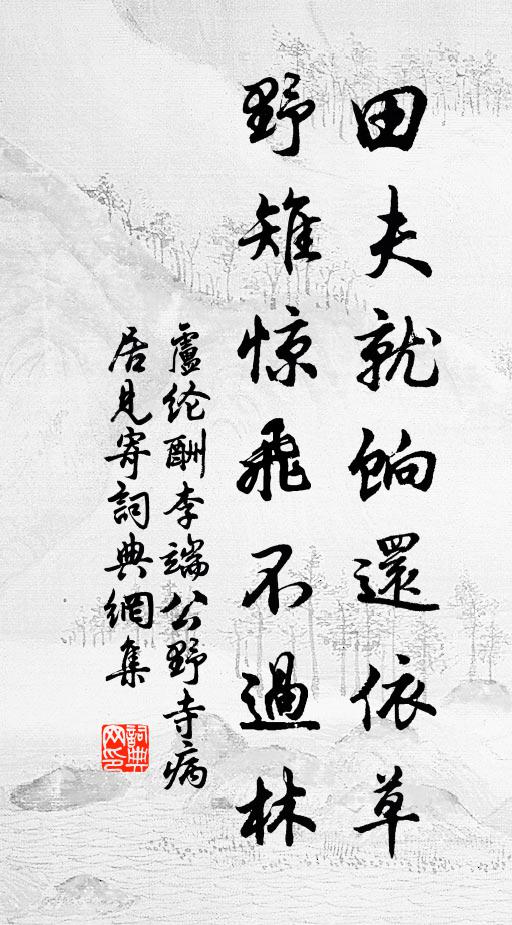 田夫就餉還依草
野雉惊飛不過林
盧纶酬李端公野寺病
居見寄詞典網集
詞典网印